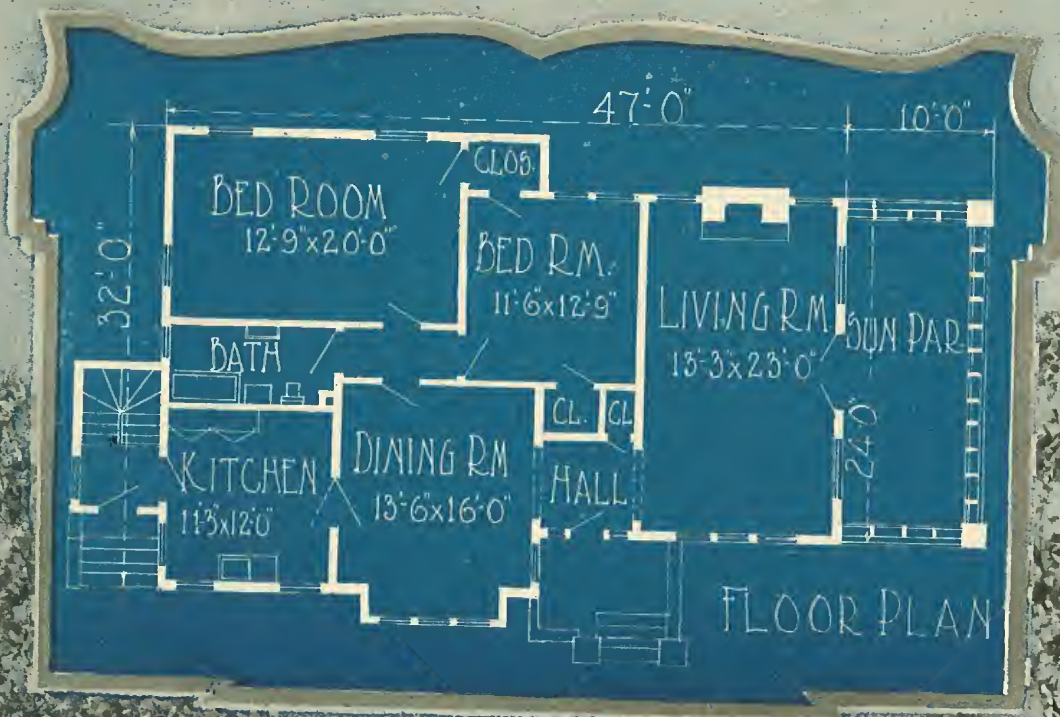 47'-0"
10'-0"
CLOS.
BED ROOM
12'-9"x20'-0"
32'-0"
BED RM.
11'-6"x12'-9"
LIVING RM
13'-3"x23'-0"
SUN PAR.
BATH
24'-0"
CL.
CL
KITCHEN
11'-3"x12'-0"
DINING RM
13'-6"x16'-0"
HALL
FLOOR PLAN